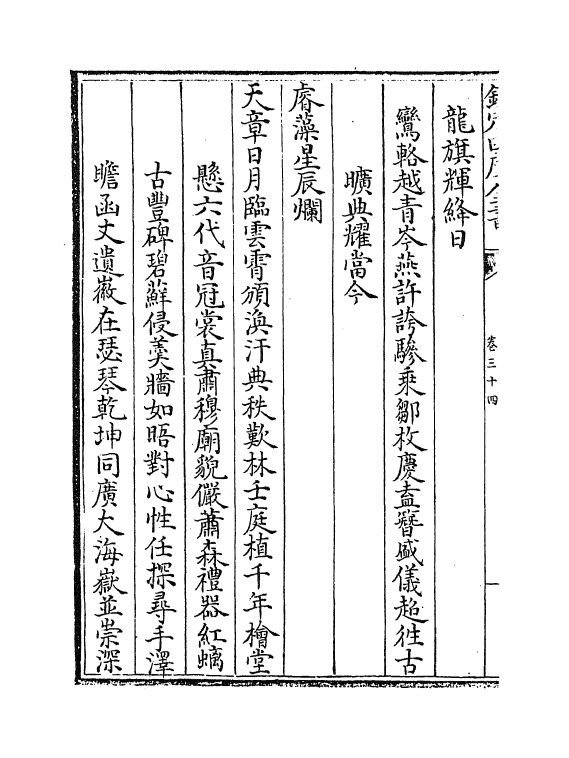 欽定四庫全書
卷三十四
龍旗輝絳日
鸞輅越青岑燕許誇驂乗鄒枚慶盍簪盛儀超往古
曠典耀當今
睿藻星辰爛
天章日月臨雲霄頒渙汗典秩歎林壬庭植千年檜堂
懸六代音冠裳真肅穆廟貌儼蕭森禮器紅螭
古豐碑碧蘚侵羮牆如晤對心性任探尋手澤
瞻函丈遺徽在瑟琴乾坤同廣大海嶽並崇深